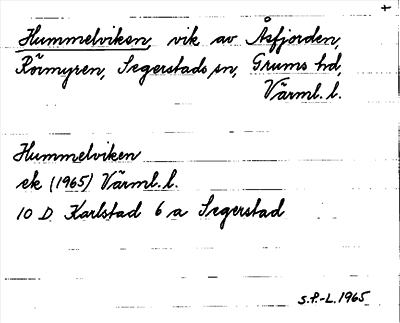 +
Hummelviken, vik av Åsfjorden,
Rörmyren, Segerstads sn, Grums hd,
Värml. l.
Hummelviken
ek (1965) Värml. l.
10 D Karlstad 6 a Segerstad
S.P.-L. 1965